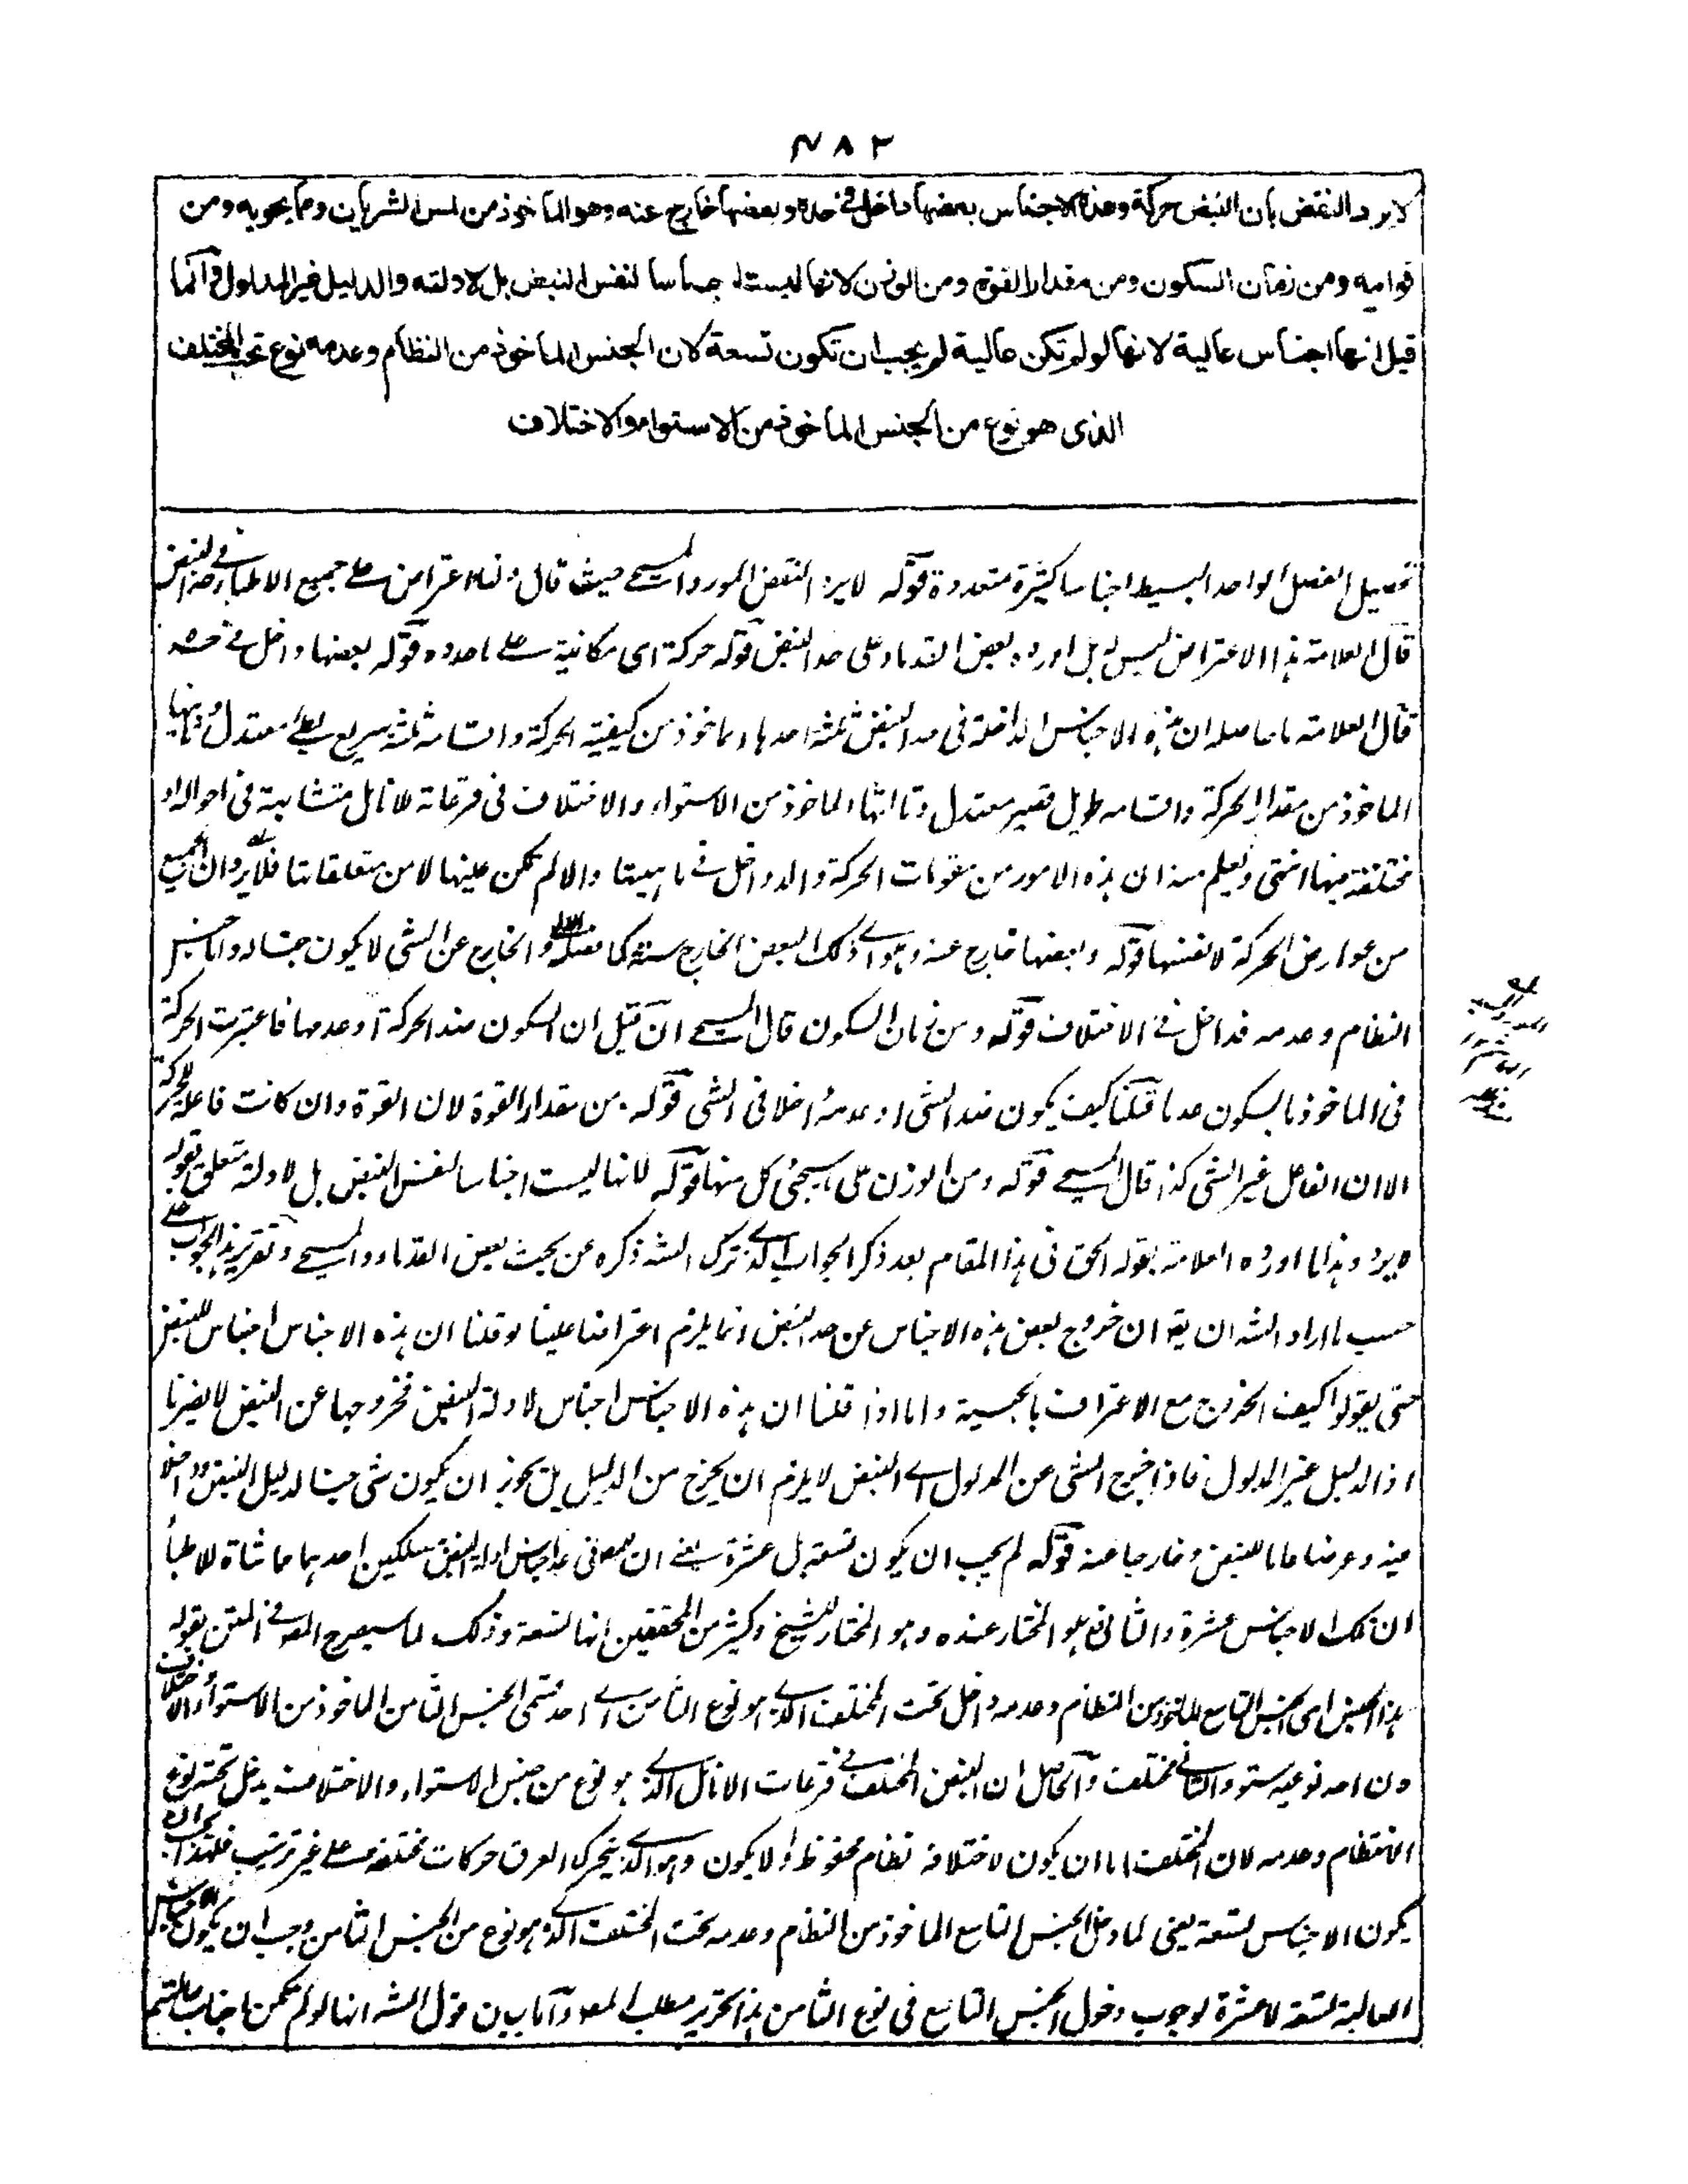 ٤٨٢
لا يرد النقض بان النبض حركة وهذه الاجناس بعضها داخل فى حده وبعضها خارج عنه وهو الماخوذ من لمس الشريان ومما يحويه ومن
قوامه ومن زمان السكون ومن مقدار القوة ومن الوزن لانها ليست اجناسا لنفس النبض بل لادلته والدليل غير المدلول وانما
قيل انها اجناس عالية لانها لو لم تكن عالية لم يجب ان تكون تسعة لان الجنس الماخوذ من النظام وعدمه نوع تحت المختلف
الذى هو نوع من الجنس الماخوذ من الاستواء والاختلاف
تحصيل الفصل الواحد البسيط اجناسا كثيرة متعددة قوله لا يرد النقض المورد المسيحى حيث قال ولنا اعتراض على جميع الاطباء فى حد النبض
قال العلامة هذا الاعتراض ليس له بل اورده بعض القدماء على حد النبض قوله حركة اى مكانية على ما حدده قوله بعضها داخل فى حده
قال العلامة ما حاصله ان هذه الاجناس الداخلة فى حد النبض ثلثة احدها الماخوذ من كيفية الحركة واقسامه ثلثة سريع بطئ معتدل وثانيها
الماخوذ من مقدار الحركة واقسامه طويل قصير معتدل وثالثها الماخوذ من الاستواء والاختلاف فى قرعاته للانامل متشابهة فى احوالها او
مختلفة فيها انتهى ويعلم منه ان هذه الامور من مقومات الحركة والدواخل فى ماهيتها والا لم تكن عينها لا من متعلقاتها فلا يرد ان الجميع
من عوارض الحركة لا نفسها قوله وبعضها خارج عنه وهو اى ذلك البعض الخارج ستة كما فصله والخارج عن الشئ لا يكون جنسا له واما جنس
النظام وعدمه فداخل فى الاختلاف قوله ومن زمان السكون قال المسيحى ان قيل ان السكون ضد الحركة او عدمها فاعتبرت الحركة
فى الماخوذ بالسكون عدما قلنا كيف يكون ضد الشئ او عدمه داخلا فى الشئ قوله ومن مقدار القوة لان القوة وان كانت فاعلة للحركة
الا ان الفاعل غير الشئ كذا قال المسيحى قوله ومن الوزن على ما سيجئ كل منها قوله لانها ليست اجناسا لنفس النبض بل لادلته متعلق بقوله
لا يرد وهذا ما اورده العلامة بقوله الحق فى هذا المقام بعد ذكر الجواب الذى ترك الشه ذكره عن بحث بعض القدماء والمسيحى وتقرير هذا الجواب على
حسب ما اراد الشه ان يقو ان خروج بعض هذه الاجناس عن حد النبض انما يلزم اعتراضا علينا لو قلنا ان هذه الاجناس اجناس للنبض
حتى يقولوا كيف الخروج مع الاعتراف بالجنسية واما اذا قلنا ان هذه الاجناس اجناس لادلة النبض فخروجها عن النبض لا يضرنا
اذ الدليل غير المدلول فاذا خرج الشئ عن المدلول اى النبض لا يلزم ان يخرج من الدليل بل يجوز ان يكون شئ جنسا لدليل النبض وداخلا
فيه وعرضا عاما للنبض وخارجا عنه قوله لم يجب ان يكون تسعة بل عشرة يعنى ان للمص فى عد اجناس ادلة النبض مسلكين احدهما مماشاة للاطباء
ان تلك الاجناس عشرة والثانى ما هو المختار عنده وهو المختار للشيخ وكثير من المحققين انها تسعة وذلك لما سيصرح المص فى المتن بقوله
هذا الجنس اى الجنس التاسع الماخوذ من النظام وعدمه داخل تحت المختلف الذى هو نوع الثامن اى احد قسمى الجنس الثامن الماخوذ من الاستواء والاختلاف
وان احد نوعيه مستو والثانى مختلف والحاصل ان النبض المختلف فى قرعات الانامل الذى هو نوع من جنس الاستواء والاختلاف يدخل تحته نوع
الانتظام وعدمه لان المختلف اما ان يكون لاختلافه نظام محفوظ او لا يكون وهو الذى يتحرك العرق حركات مختلفة على غير ترتيب فلهذا يجب ان
يكون الاجناس تسعة يعنى لما دخل الجنس التاسع الماخوذ من النظام وعدمه تحت المختلف الذى هو نوع من الجنس الثامن وجب ان يكون الاجناس
العالية تسعة لا عشرة لوجوب دخول الجنس التاسع فى نوع الثامن هذا تحرير مطلب المص واما بيان قول الشه انها لو لم تكن اجناسا عالية لم